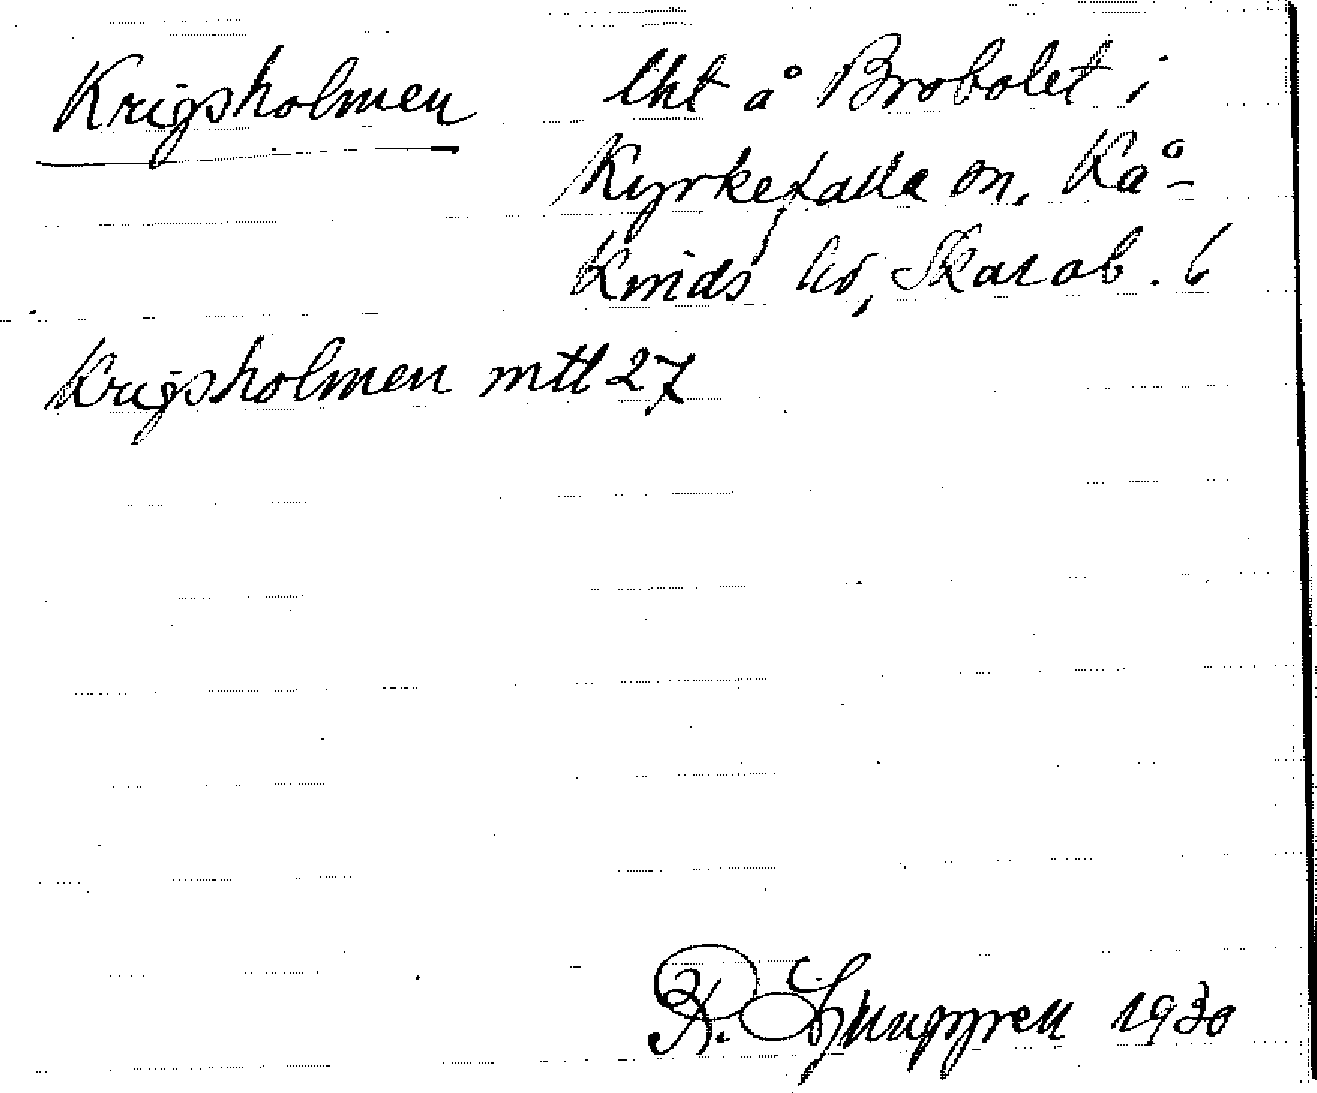 Krigsholmen lht å Brobolet i
Kyrkefalla sn, Kå-
kinds hd, Skarab. l
Krigsholmen mtl 27
R. Ljunggren 1930